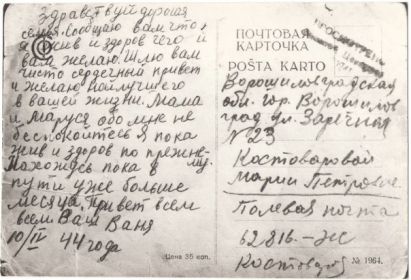 Здравствуй дорогая
семья. Сообщаю вам что
я жив и здоров чего и
вам желаю. Шлю вам
чисто сердечный привет
и желаю наилучшего
в вашей жизни. Мама
и Маруся обо мне не
беспокойтесь я пока
жив и здоров по прежнему.
Нахожусь пока в
пути уже больше
месяца. Привет всем
всем Ваш Ваня
10/IV 44 года
ПОЧТОВАЯ
КАРТОЧКА
POŜTA KARTO
ПРОСМОТРЕНО
Ворошиловградская
обл. гор. Ворошилов
град ул. Заречная
№ 23
Костоваровой
Марии Петровне
Полевая почта
62816-Ж
Костоваров
Цена 35 коп.
№ 1964.